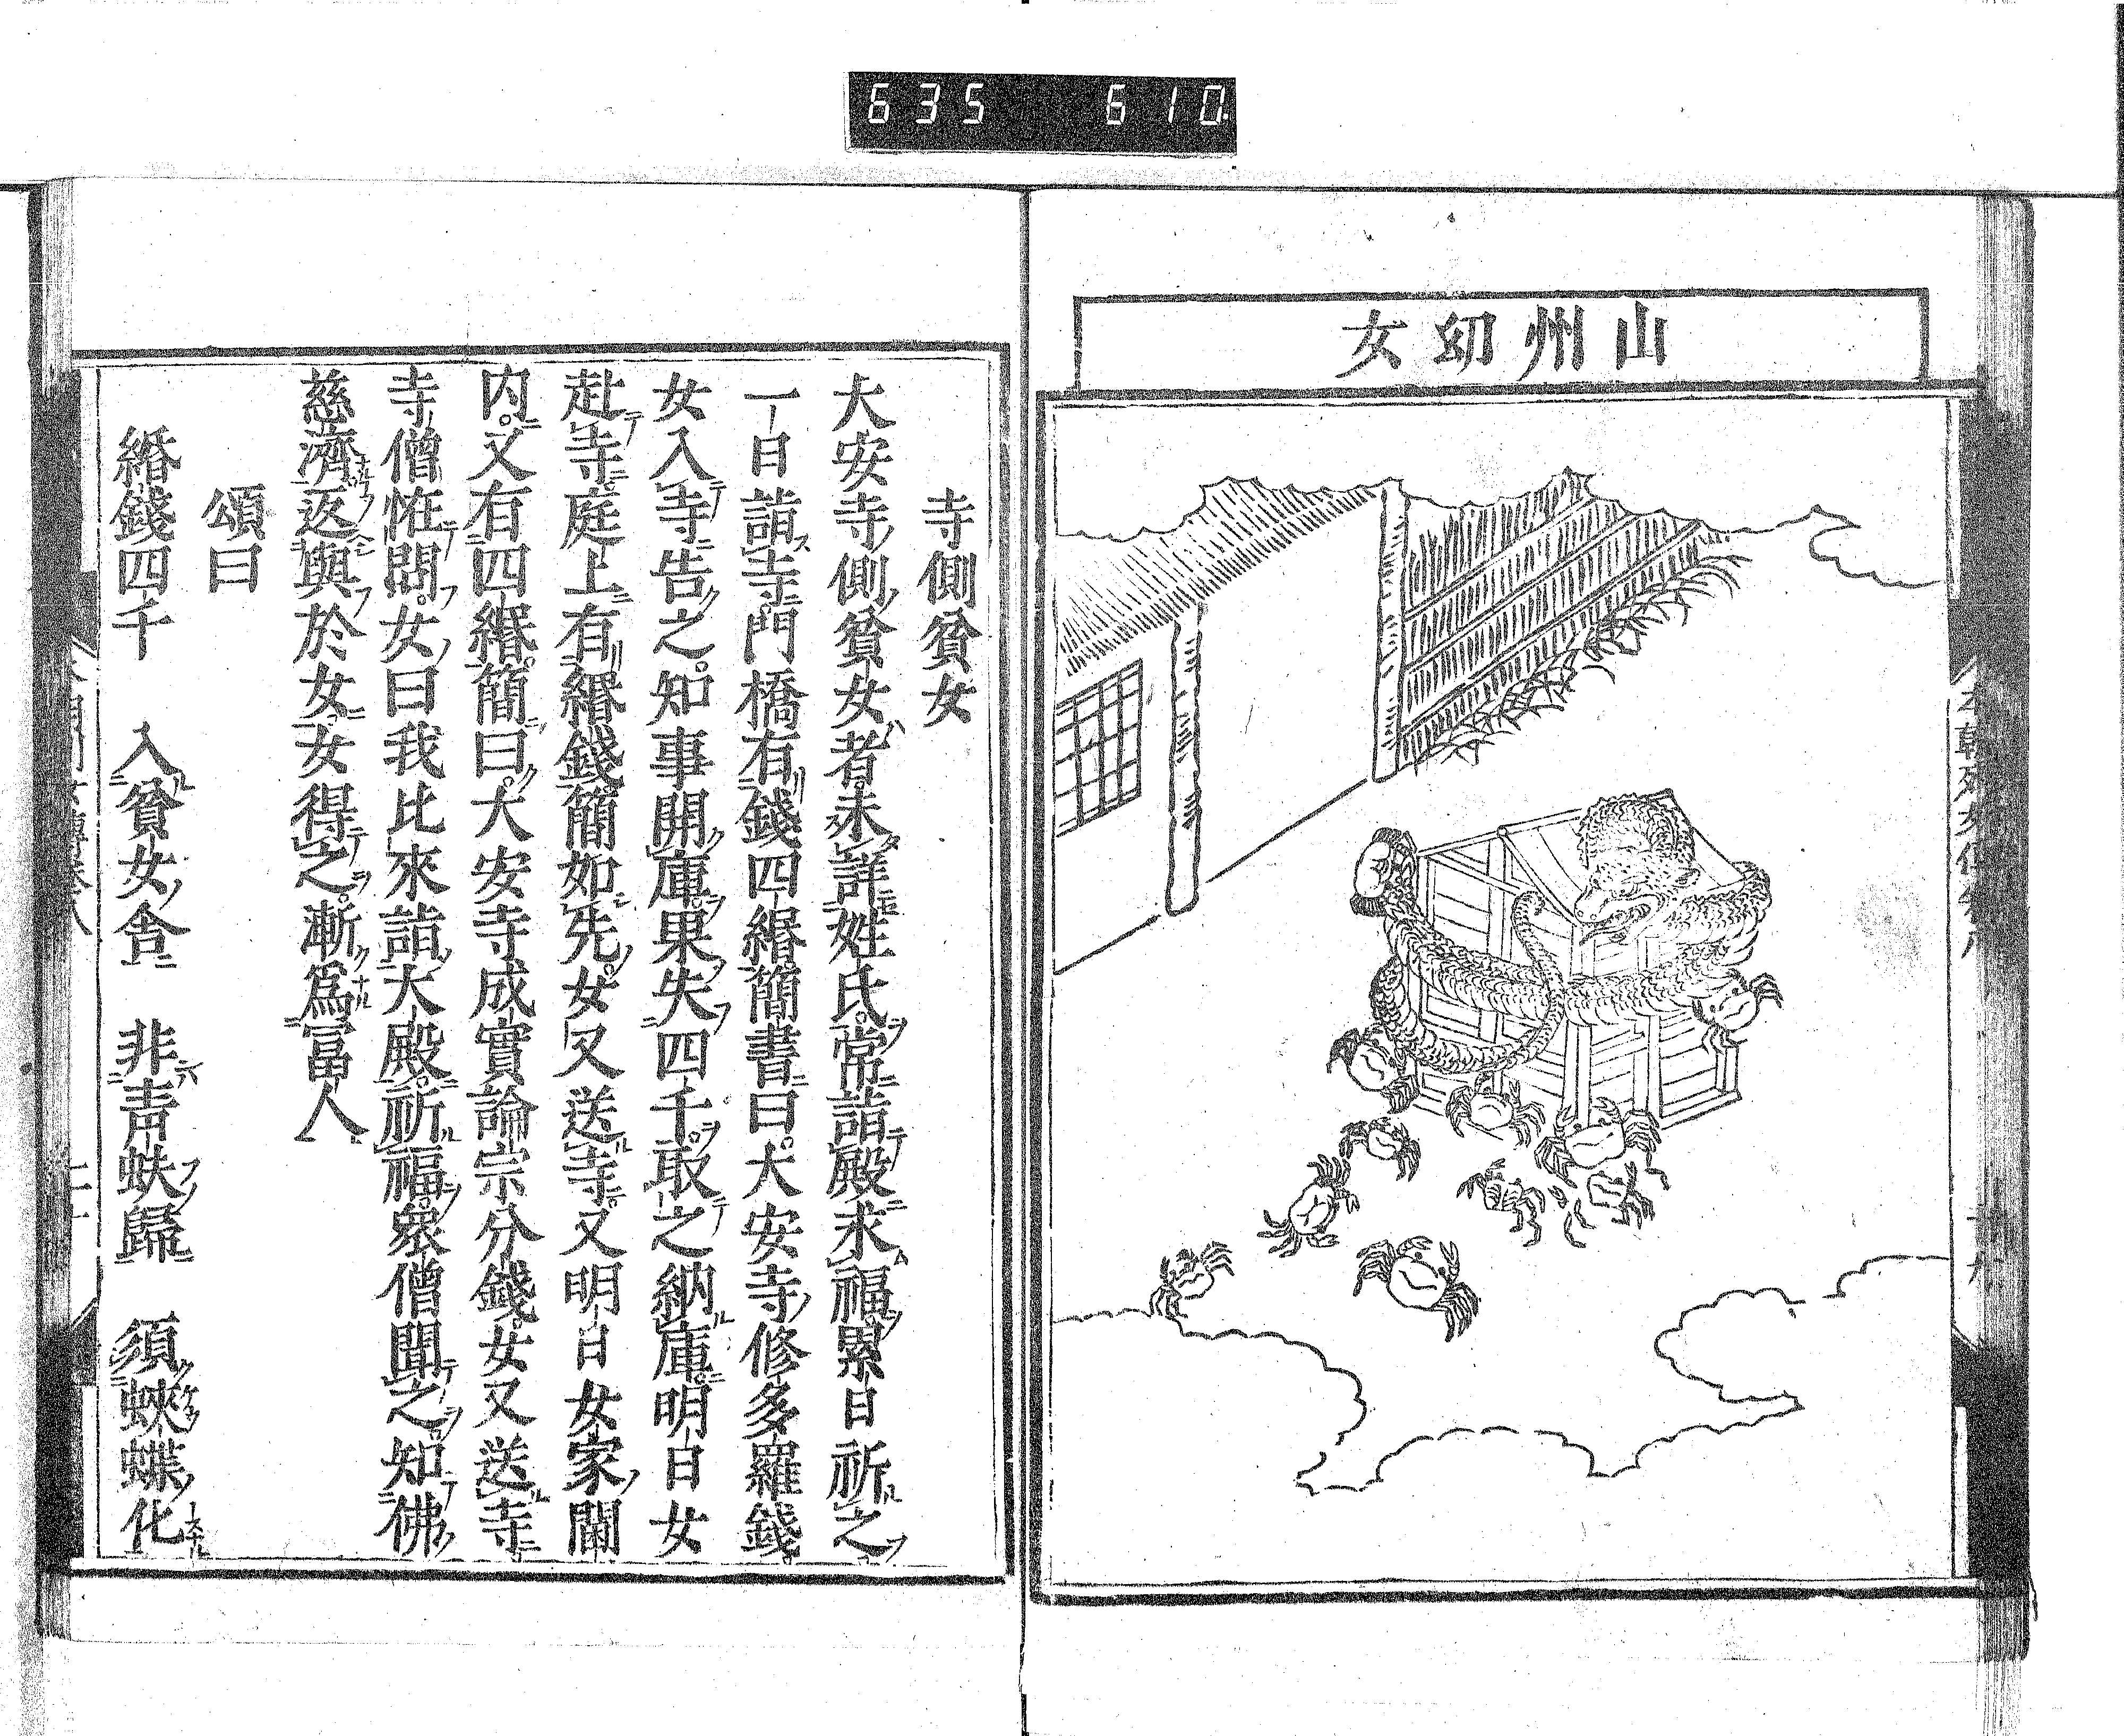 635 610
山州幼女
寺側貧女
大安寺側貧女者未詳姓氏常詣殿求福累日祈之
一日詣寺門橋有錢四緡簡書曰大安寺修多羅錢
女入寺告之知事開庫果失四千取之納庫明日女
赴寺庭上有緡錢簡如先女又送寺又明日女家閫
内又有四緡簡曰大安寺成實論宗分錢女又送寺
寺僧恠問女曰我比來詣大殿祈福衆僧聞之知佛
慈濟返與於女女得之漸爲冨人
頌曰
緡錢四千 入貧女舎 非青蚨歸 須蛺蝶化